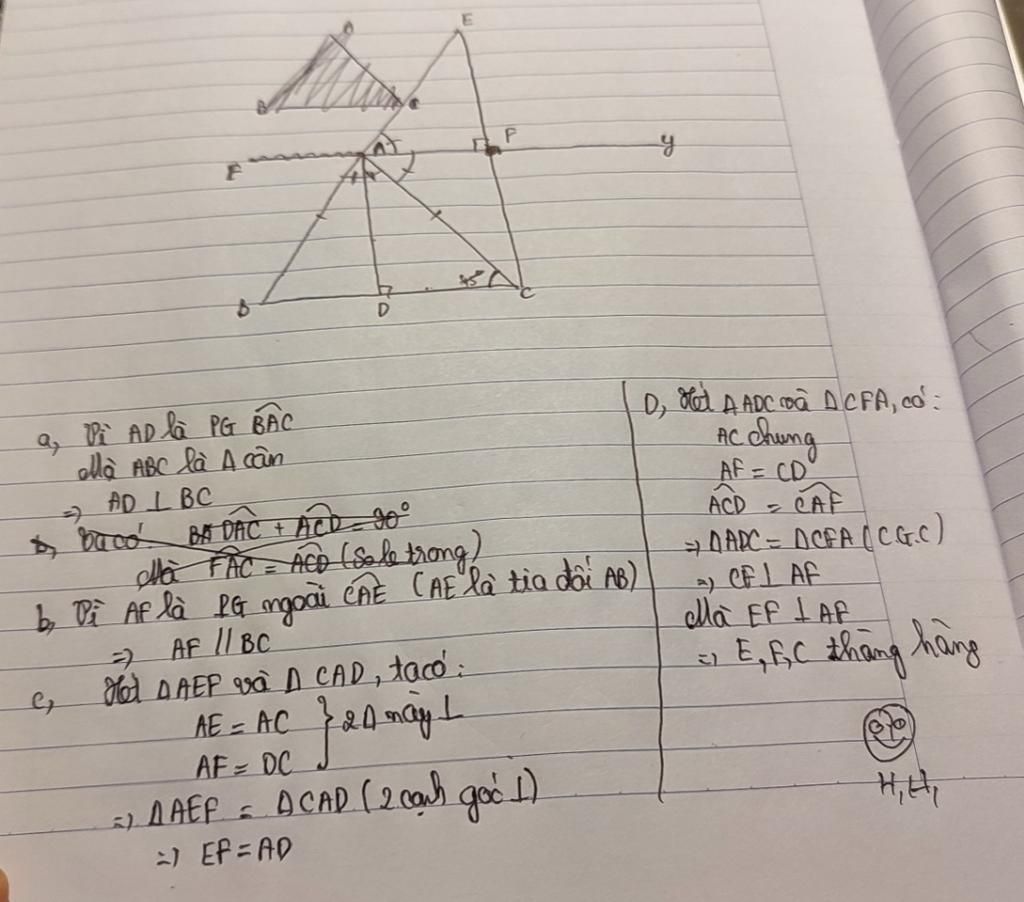 E
A
B
C
A
F
y
F
B
D
45°
C
a, Vì AD là PG BAC
Mà ABC là Δ cân
=> AD ⊥ BC
b, Ta có: BA DAC + ACD = 90°
Mà FAC = ACD (So le trong)
b, Vì AF là PG ngoài CAE (AE là tia đối AB)
=> AF // BC
c, Xét ΔAEF và ΔCAD, ta có:
AE = AC } 2Δ này ⊥
AF = DC
=> ΔAEF = ΔCAD (2 cạnh góc ⊥)
=> EF = AD
D, Xét ΔADC và ΔCFA, có:
AC chung
AF = CD
ACD = CAF
=> ΔADC = ΔCFA (C.G.C)
=> CF ⊥ AF
Mà EF ⊥ AF
=> E, F, C thẳng hàng
H, H,